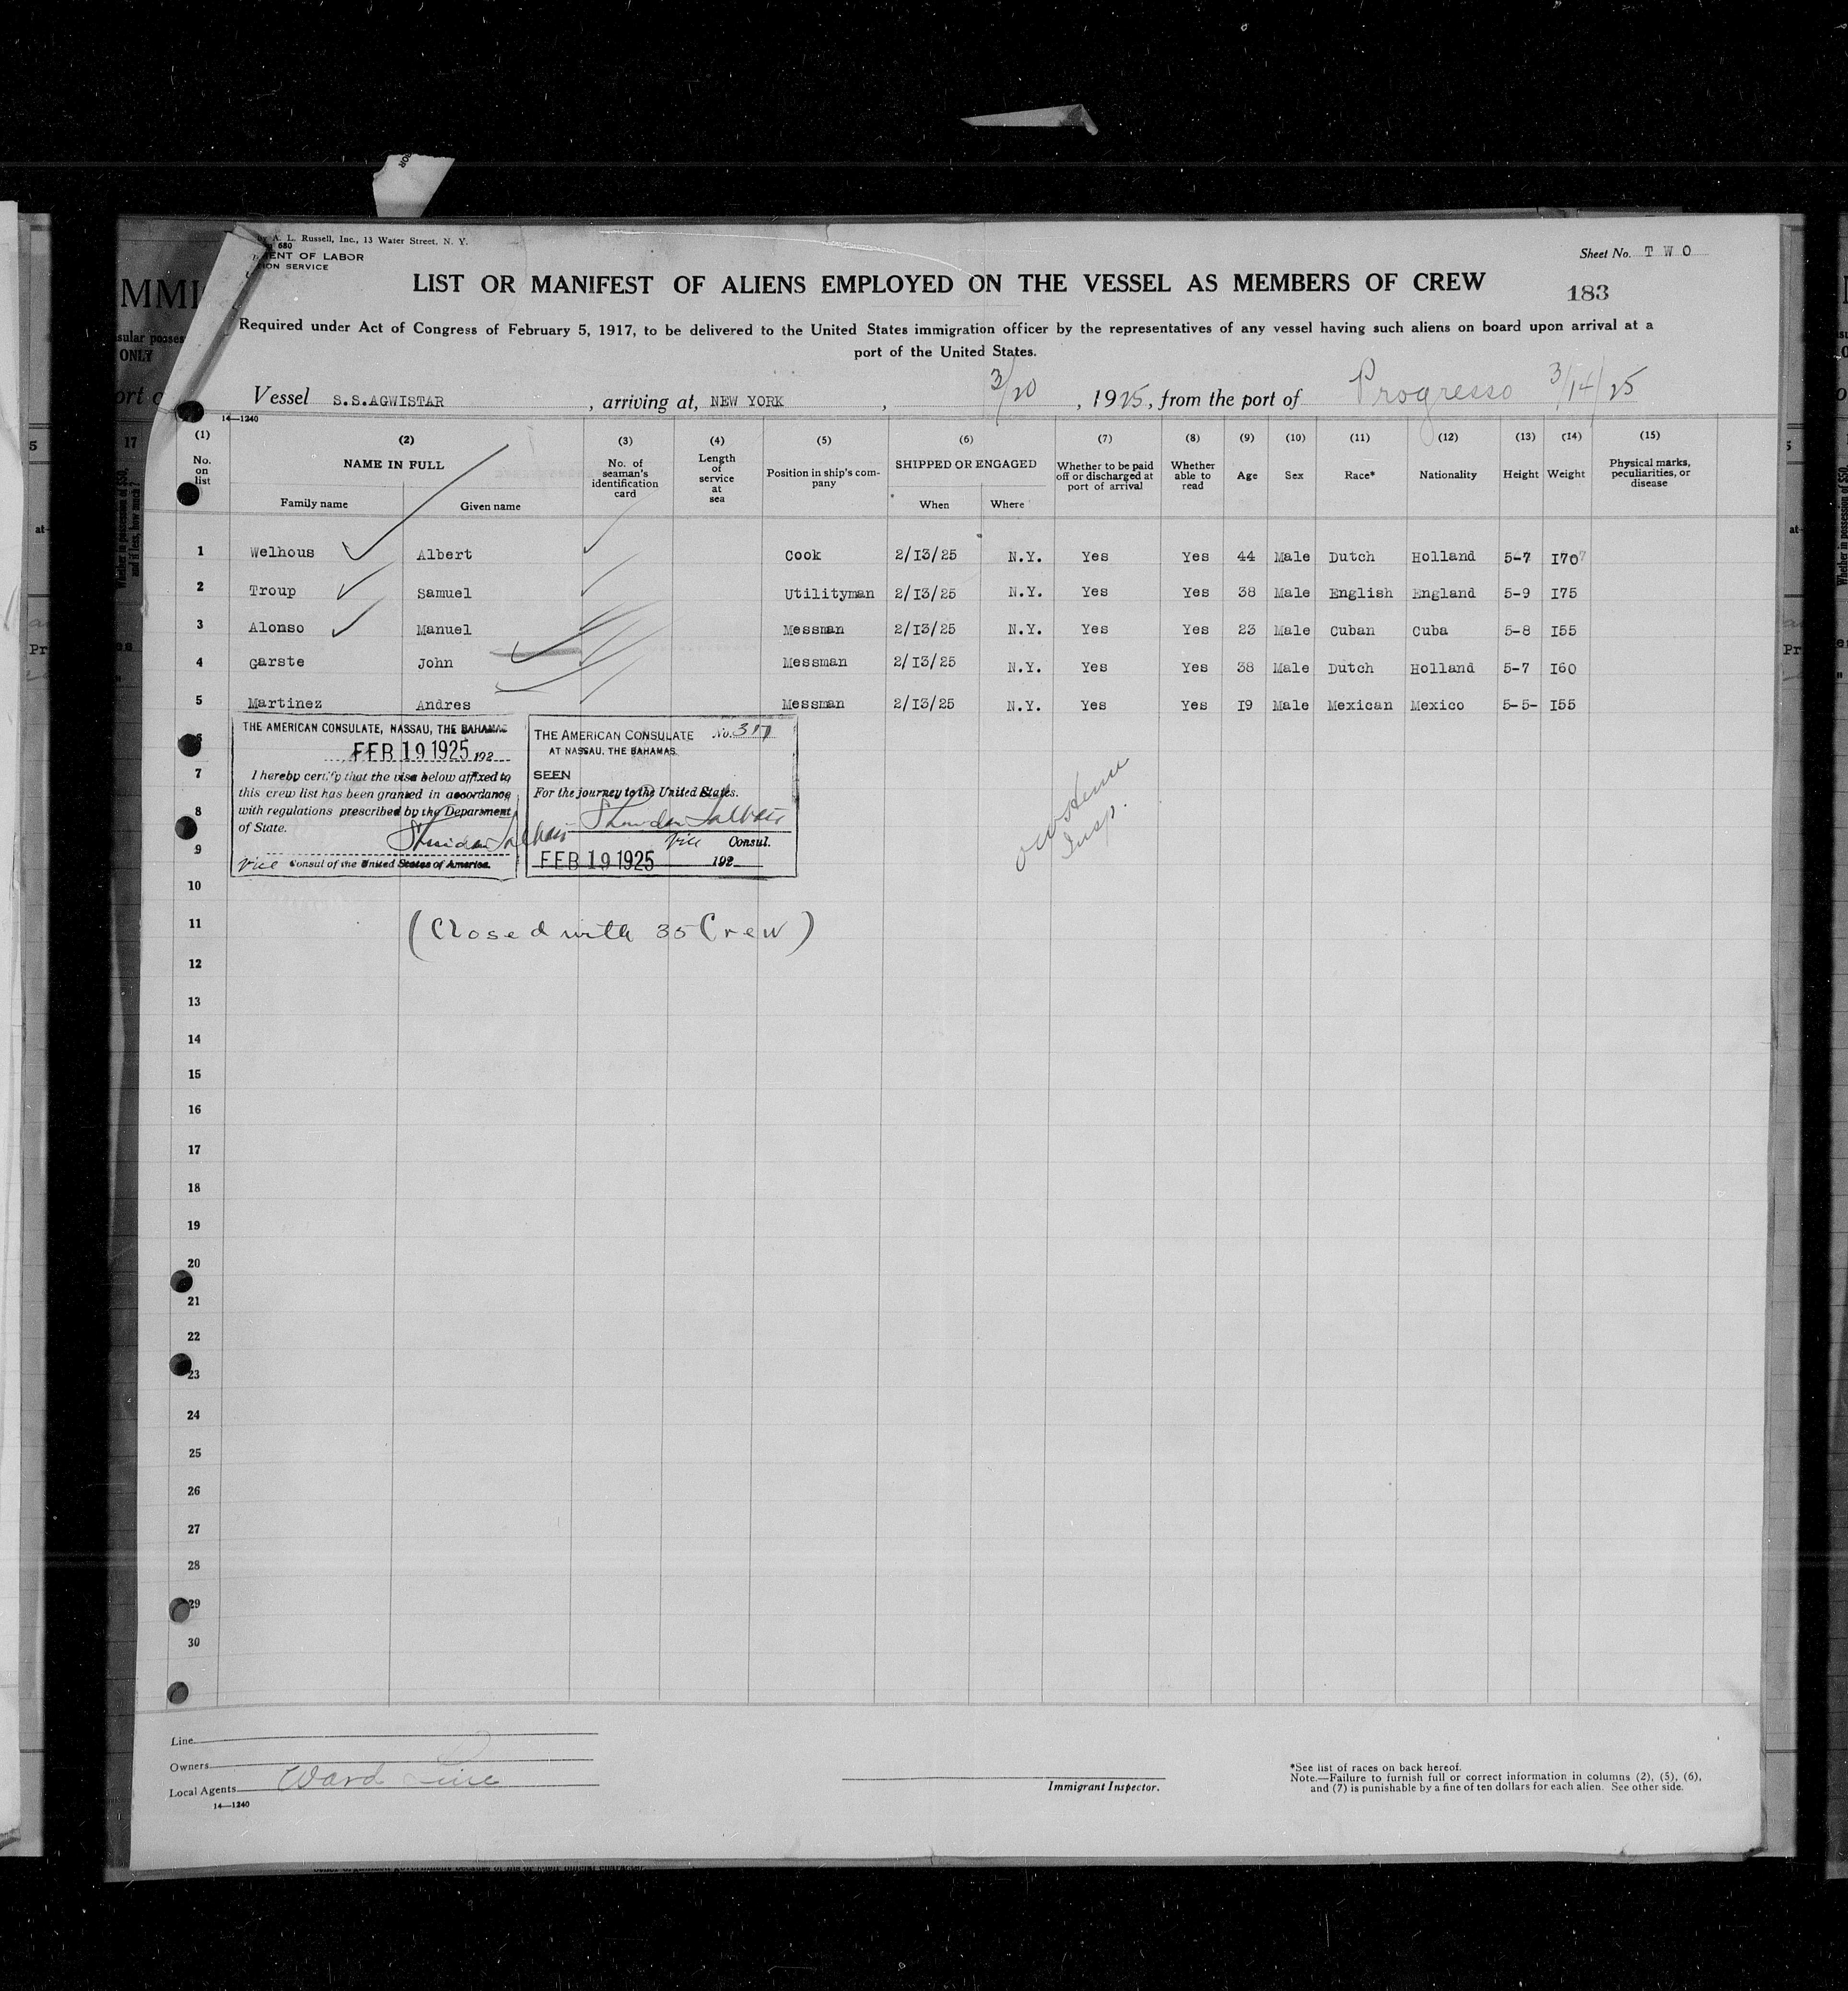 A. L. Russell, Inc., 13 Water Street, N. Y.
680
ENT OF LABOR
ION SERVICE
Sheet No. T W O
LIST OR MANIFEST OF ALIENS EMPLOYED ON THE VESSEL AS MEMBERS OF CREW
183
Required under Act of Congress of February 5, 1917, to be delivered to the United States immigration officer by the representatives of any vessel having such aliens on board upon arrival at a
port of the United States.
Vessel S.S.AGWISTAR , arriving at, NEW YORK , 3/20 , 1925, from the port of Progresso 3/14/25
14—1240
(1) (2) (3) (4) (5) (6) (7) (8) (9) (10) (11) (12) (13) (14) (15)
No. on list NAME IN FULL Family name Given name No. of seaman's identification card Length of service at sea Position in ship's company SHIPPED OR ENGAGED When Where Whether to be paid off or discharged at port of arrival Whether able to read Age Sex Race* Nationality Height Weight Physical marks, peculiarities, or disease
1 Welhous Albert Cook 2/13/25 N.Y. Yes Yes 44 Male Dutch Holland 5-7 170
2 Troup Samuel Utilityman 2/13/25 N.Y. Yes Yes 38 Male English England 5-9 175
3 Alonso Manuel Messman 2/13/25 N.Y. Yes Yes 23 Male Cuban Cuba 5-8 155
4 Garste John Messman 2/13/25 N.Y. Yes Yes 38 Male Dutch Holland 5-7 160
5 Martinez Andres Messman 2/13/25 N.Y. Yes Yes 19 Male Mexican Mexico 5-5- 155
THE AMERICAN CONSULATE, NASSAU, THE BAHAMAS
FEB 19 1925 192
I hereby certify that the visa below affixed to
this crew list has been granted in accordance
with regulations prescribed by the Department
of State.
Vice Consul of the United States of America.
THE AMERICAN CONSULATE No. 317
AT NASSAU, THE BAHAMAS.
SEEN
For the journey to the United States.
Vice Consul.
FEB 19 1925 192
Insp.
7
8
9
10
11
(Closed with 35 Crew)
12
13
14
15
16
17
18
19
20
21
22
23
24
25
26
27
28
29
30
Line
Owners
Local Agents Ward Line
14—1240
Immigrant Inspector.
*See list of races on back hereof.
Note.—Failure to furnish full or correct information in columns (2), (5), (6),
and (7) is punishable by a fine of ten dollars for each alien. See other side.